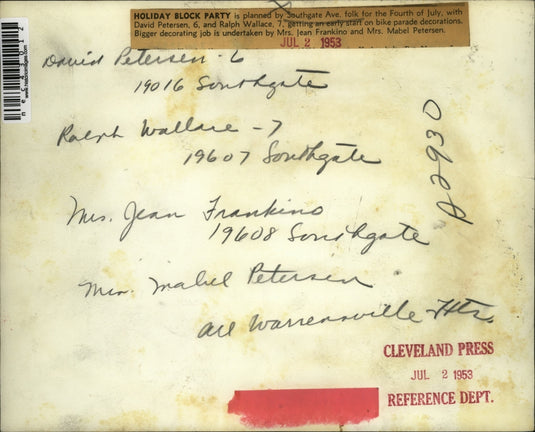 HOLIDAY BLOCK PARTY is planned by Southgate Ave. folk for the Fourth of July, with
David Petersen, 6, and Ralph Wallace, 7, getting an early start on bike parade decorations.
Bigger decorating job is undertaken by Mrs. Jean Frankino and Mrs. Mabel Petersen.
JUL 2 1953
David Petersen - 6
19016 Southgate
Ralph Wallace - 7
19607 Southgate
A2930
Mrs. Jean Frankino
19608 Southgate
Mrs. Mabel Petersen
All Warrensville Hts.
CLEVELAND PRESS
JUL 2 1953
REFERENCE DEPT.